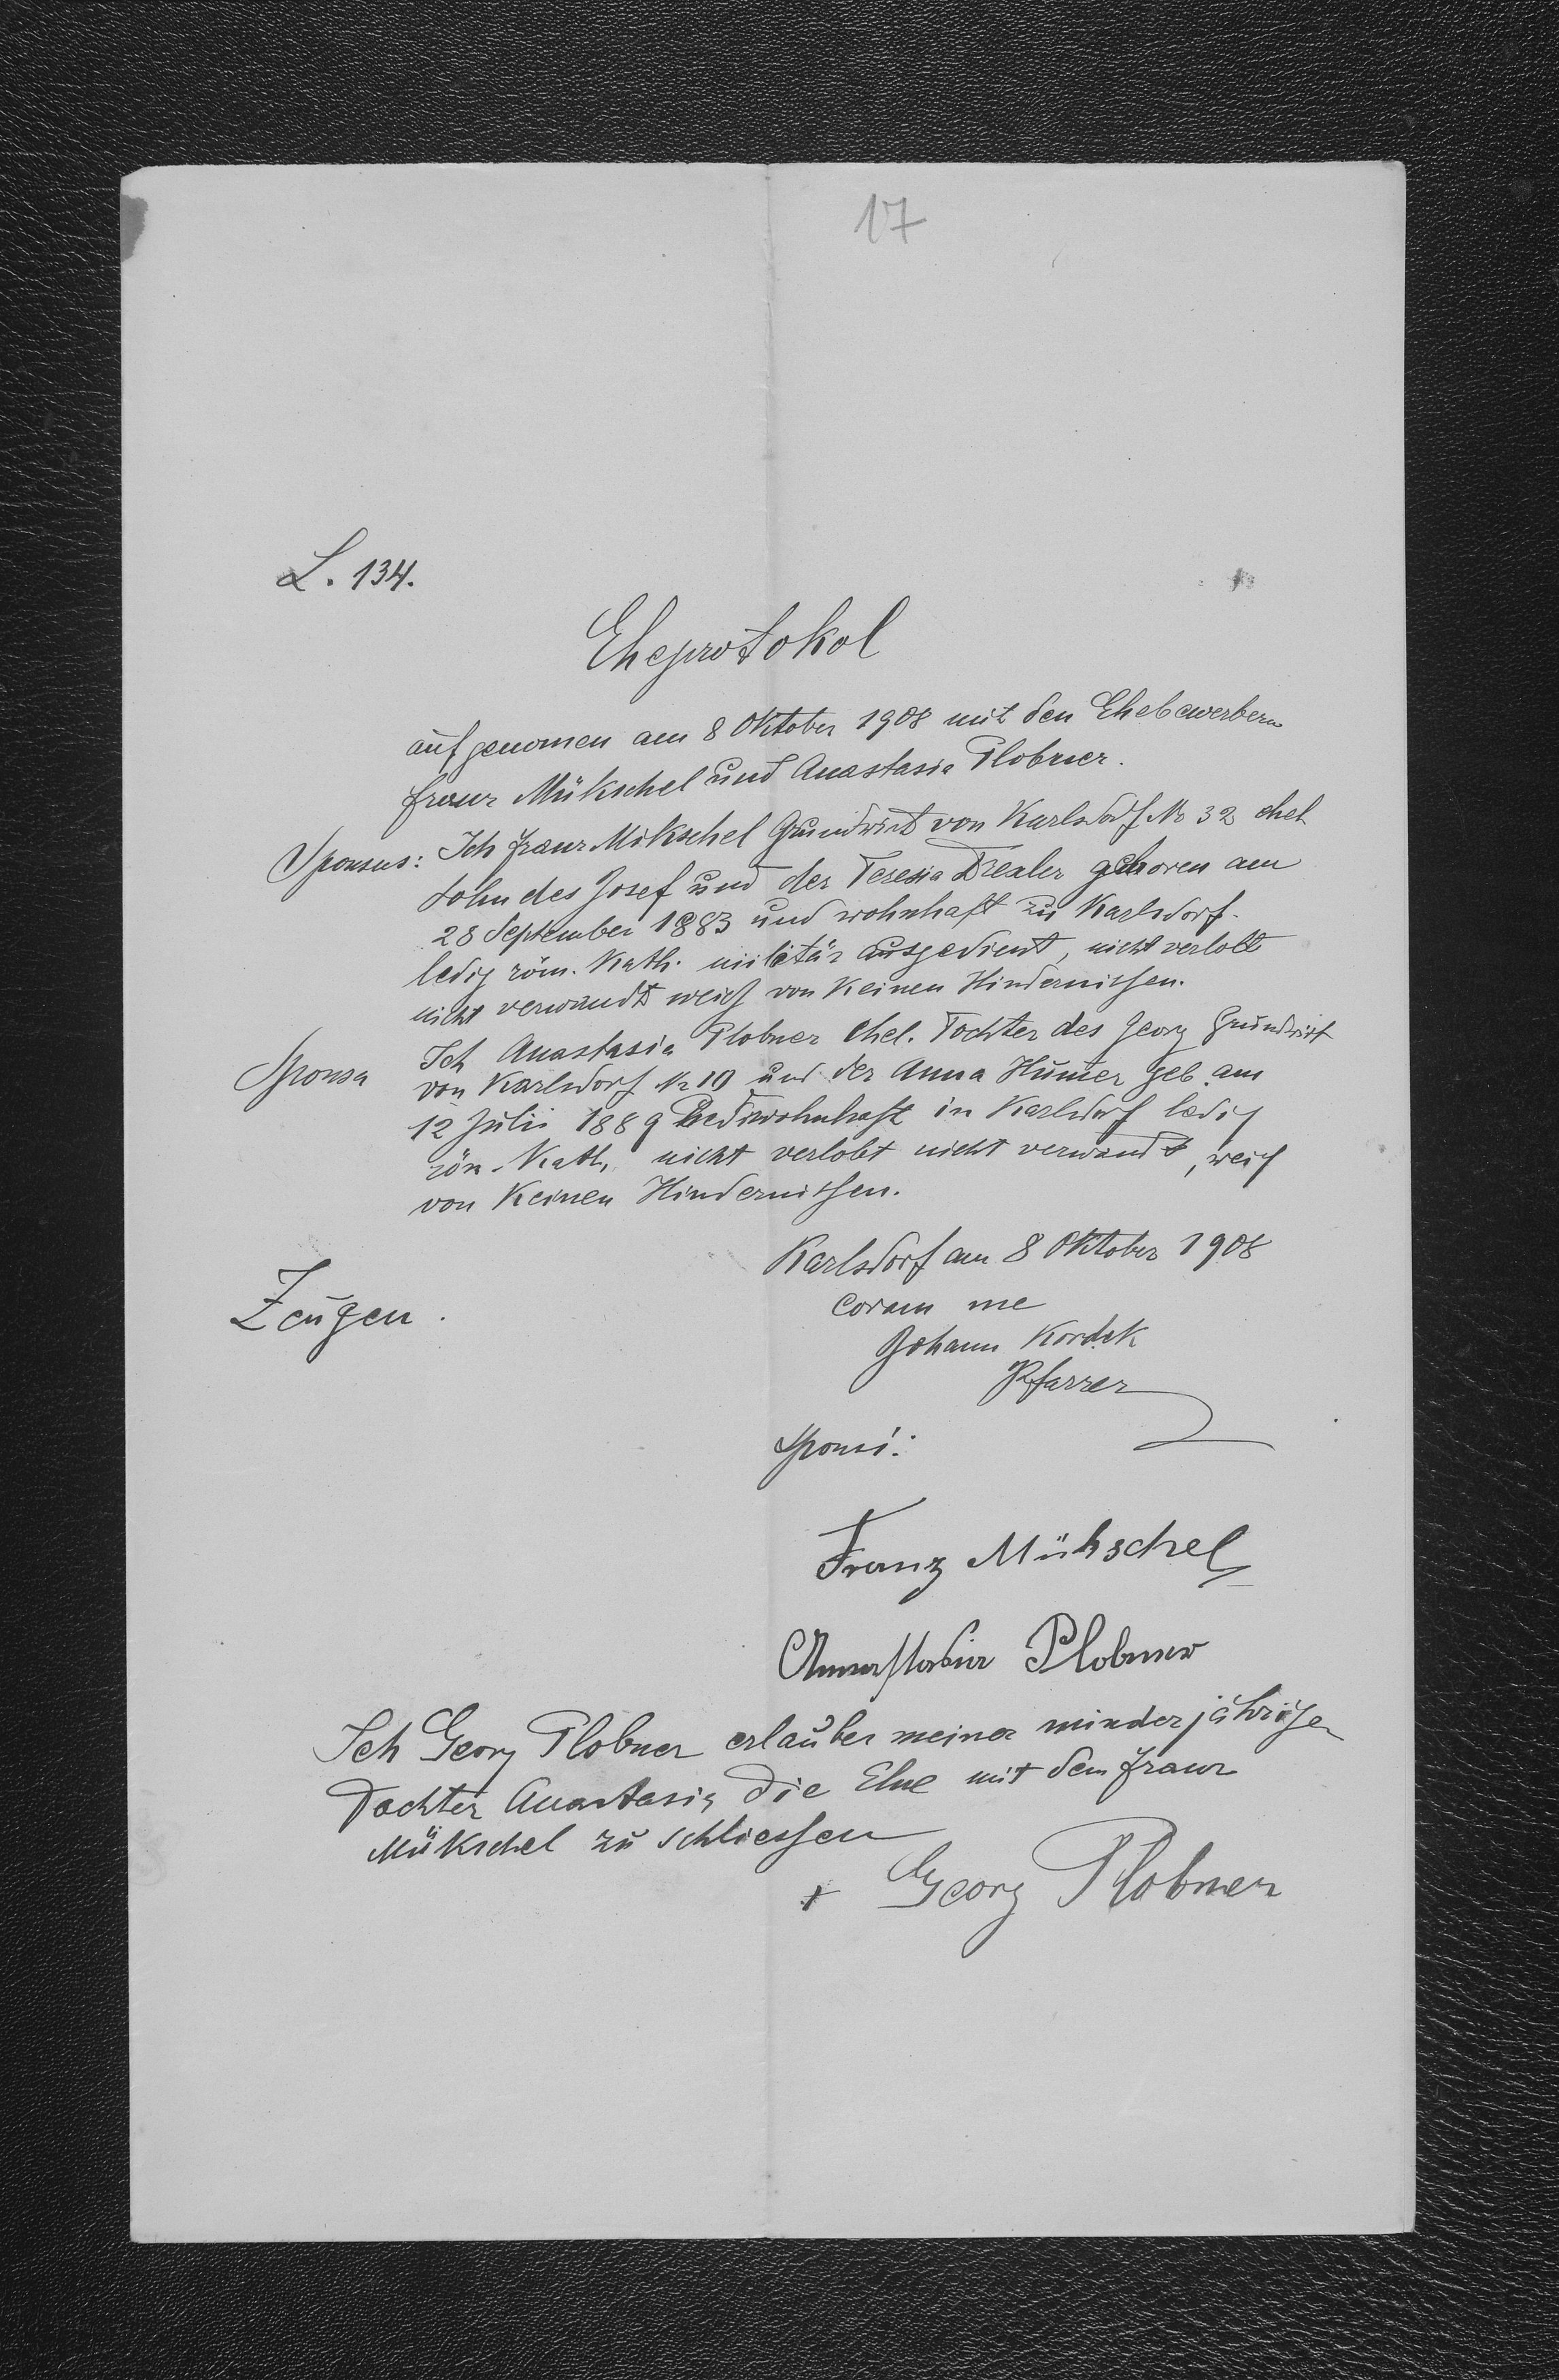 17
L. 134.
Eheprotokol
aufgenomen am 8 Oktober 1908 mit den Ehebewerbern
Franz Mükschel und Anastasia Plobner.
Sponsus: Ich Franz Mikschel Grundwirt von Karlsdorf Nr 32 ehel
Sohn des Josef und der Teresia Drexler geboren am
28 September 1883 und wohnhaft zu Karlsdorf.
ledig röm. Kath. militär ausgedient, nicht verlobt
nicht verwandt weiß von Keinen Hindernissen.
Sponsa Ich Anastasia Plobner ehel. Tochter des Georg Grundwirt
von Karlsdorf Nr 19 und der Anna Humer geb. am
12 Juli 1889 wohnhaft in Karlsdorf ledig
röm. Kath. nicht verlobt nicht verwandt, weiß
von Keinen Hindernissen.
Karlsdorf am 8 Oktober 1908
Zeugen.
coram me
Johann Kordek
Pfarrer
Sponsi:
Franz Mükschel
Annastasia Plobner
Ich Georg Plobner erlaube meiner minderjährigen
Tochter Anastasia die Ehe mit dem Franz
Mükschel zu schliessen
+ Georg Plobner